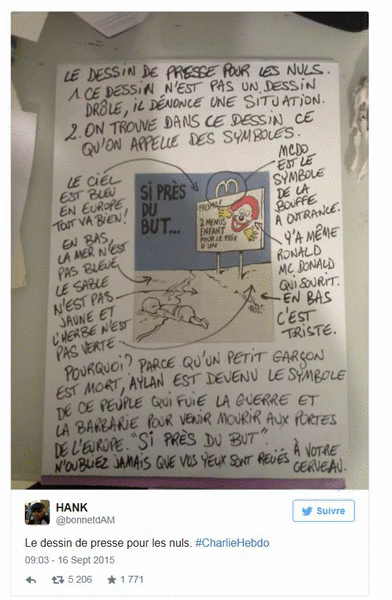 LE DESSIN DE PRESSE POUR LES NULS.
1. CE DESSIN N'EST PAS UN DESSIN
DRÔLE, IL DÉNONCE UNE SITUATION.
2. ON TROUVE DANS CE DESSIN CE
QU'ON APPELLE DES SYMBOLES.
LE CIEL
EST BLEU
EN EUROPE,
TOUT VA BIEN!
EN BAS,
LA MER N'EST
PAS BLEUE,
LE SABLE
N'EST PAS
JAUNE ET
L'HERBE N'EST
PAS VERTE
SI PRÈS
DU
BUT...
PROMO!
2 MENUS
ENFANT
POUR LE PRIX
D'UN
MCDO
EST LE
SYMBOLE
DE LA
BOUFFE
A OUTRANCE.
Y'A MÊME
RONALD
MC DONALD
QUI SOURIT.
EN BAS
C'EST
TRISTE.
POURQUOI? PARCE QU'UN PETIT GARÇON
EST MORT, AYLAN EST DEVENU LE SYMBOLE
DE CE PEUPLE QUI FUIE LA GUERRE ET
LA BARBARIE POUR VENIR MOURIR AUX PORTES
DE L'EUROPE. "SI PRÈS DU BUT".
N'OUBLIEZ JAMAIS QUE VOS YEUX SONT RELIÉS À VOTRE
CERVEAU.
HANK
@bonnetdAM
Suivre
Le dessin de presse pour les nuls. #CharlieHebdo
09:03 - 16 Sept 2015
5 206
1 771